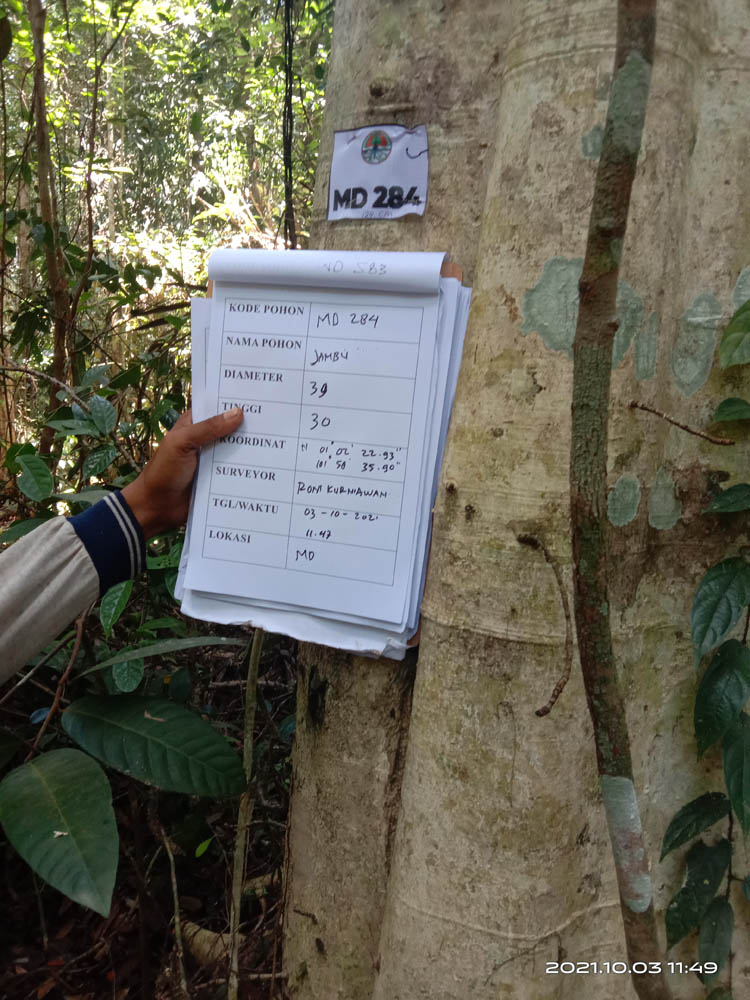 MD 284
124 cm
KODE POHON MD 284
NAMA POHON JAMBU
DIAMETER 39
TINGGI 30
KOORDINAT N 01° 02' 22.93"
101° 50' 35.90"
SURVEYOR RONI KURNIAWAN
TGL/WAKTU 03-10-2021
11.47
LOKASI MD
2021.10.03 11:49